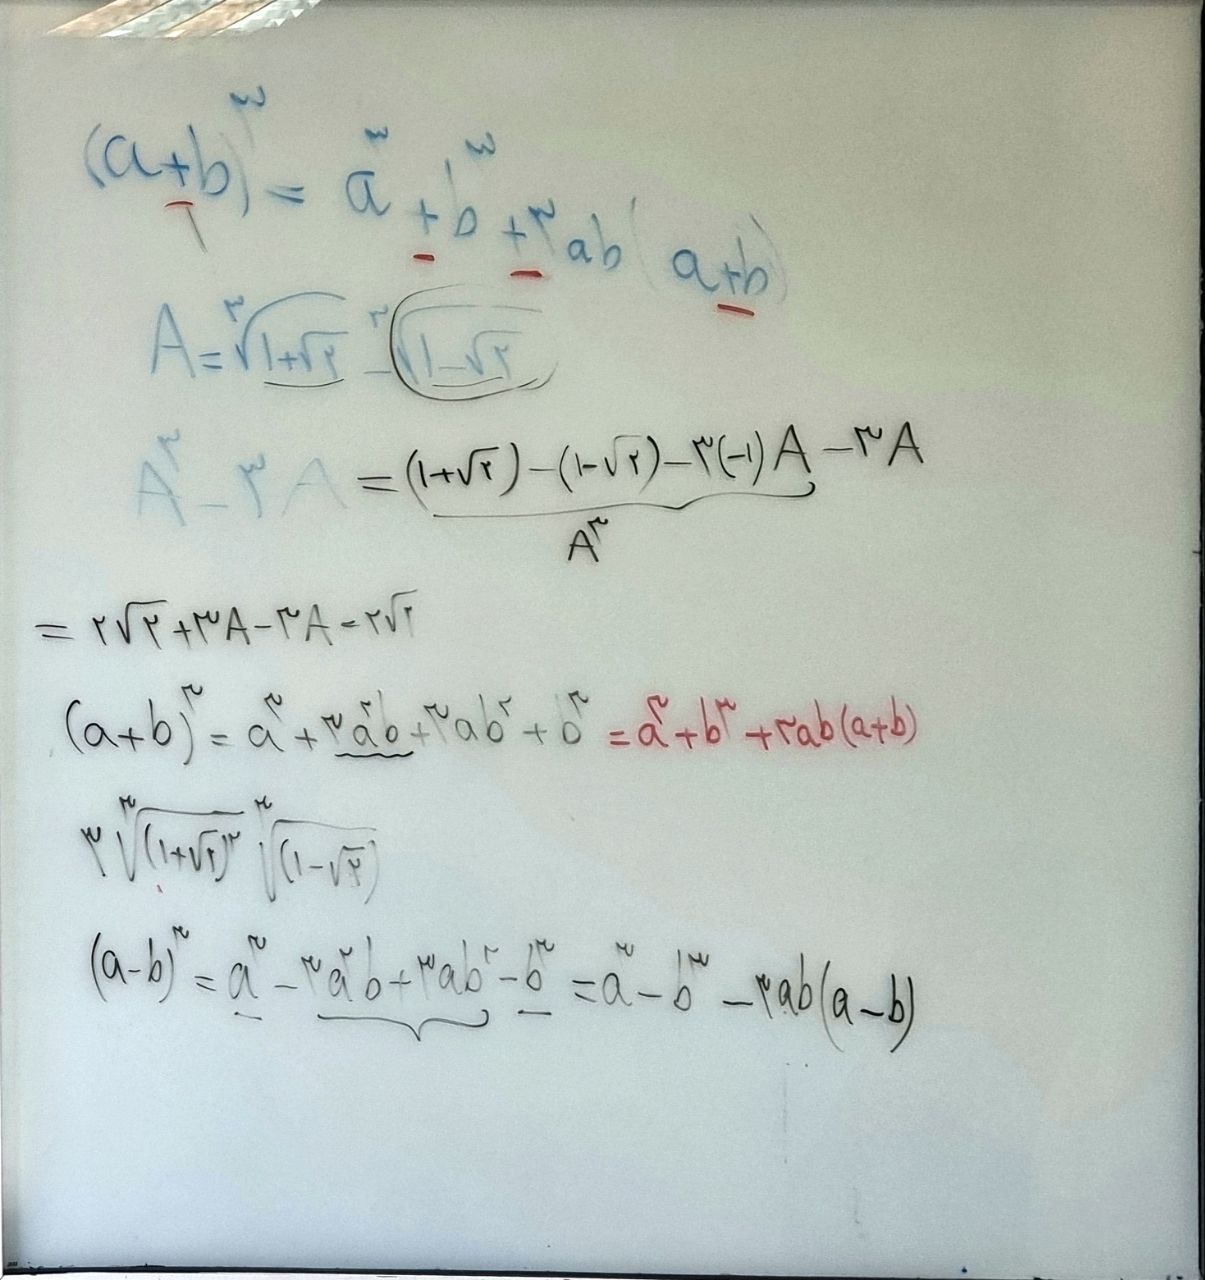 (a+b)^۳ = a^۳ + b^۳ + ۳ab(a+b)
A = ∛(۱+√۲) - ∛(۱-√۲)
A^۳ - ۳A = (۱+√۲) - (۱-√۲) - ۳(-۱)A - ۳A
A^۳
= ۲√۲ + ۳A - ۳A = ۲√۲
(a+b)^۳ = a^۳ + ۳a^۲b + ۳ab^۲ + b^۳ = a^۳ + b^۳ + ۳ab(a+b)
۳ ∛(۱+√۲)^۲ ∛(۱-√۲)
(a-b)^۳ = a^۳ - ۳a^۲b + ۳ab^۲ - b^۳ = a^۳ - b^۳ - ۳ab(a-b)